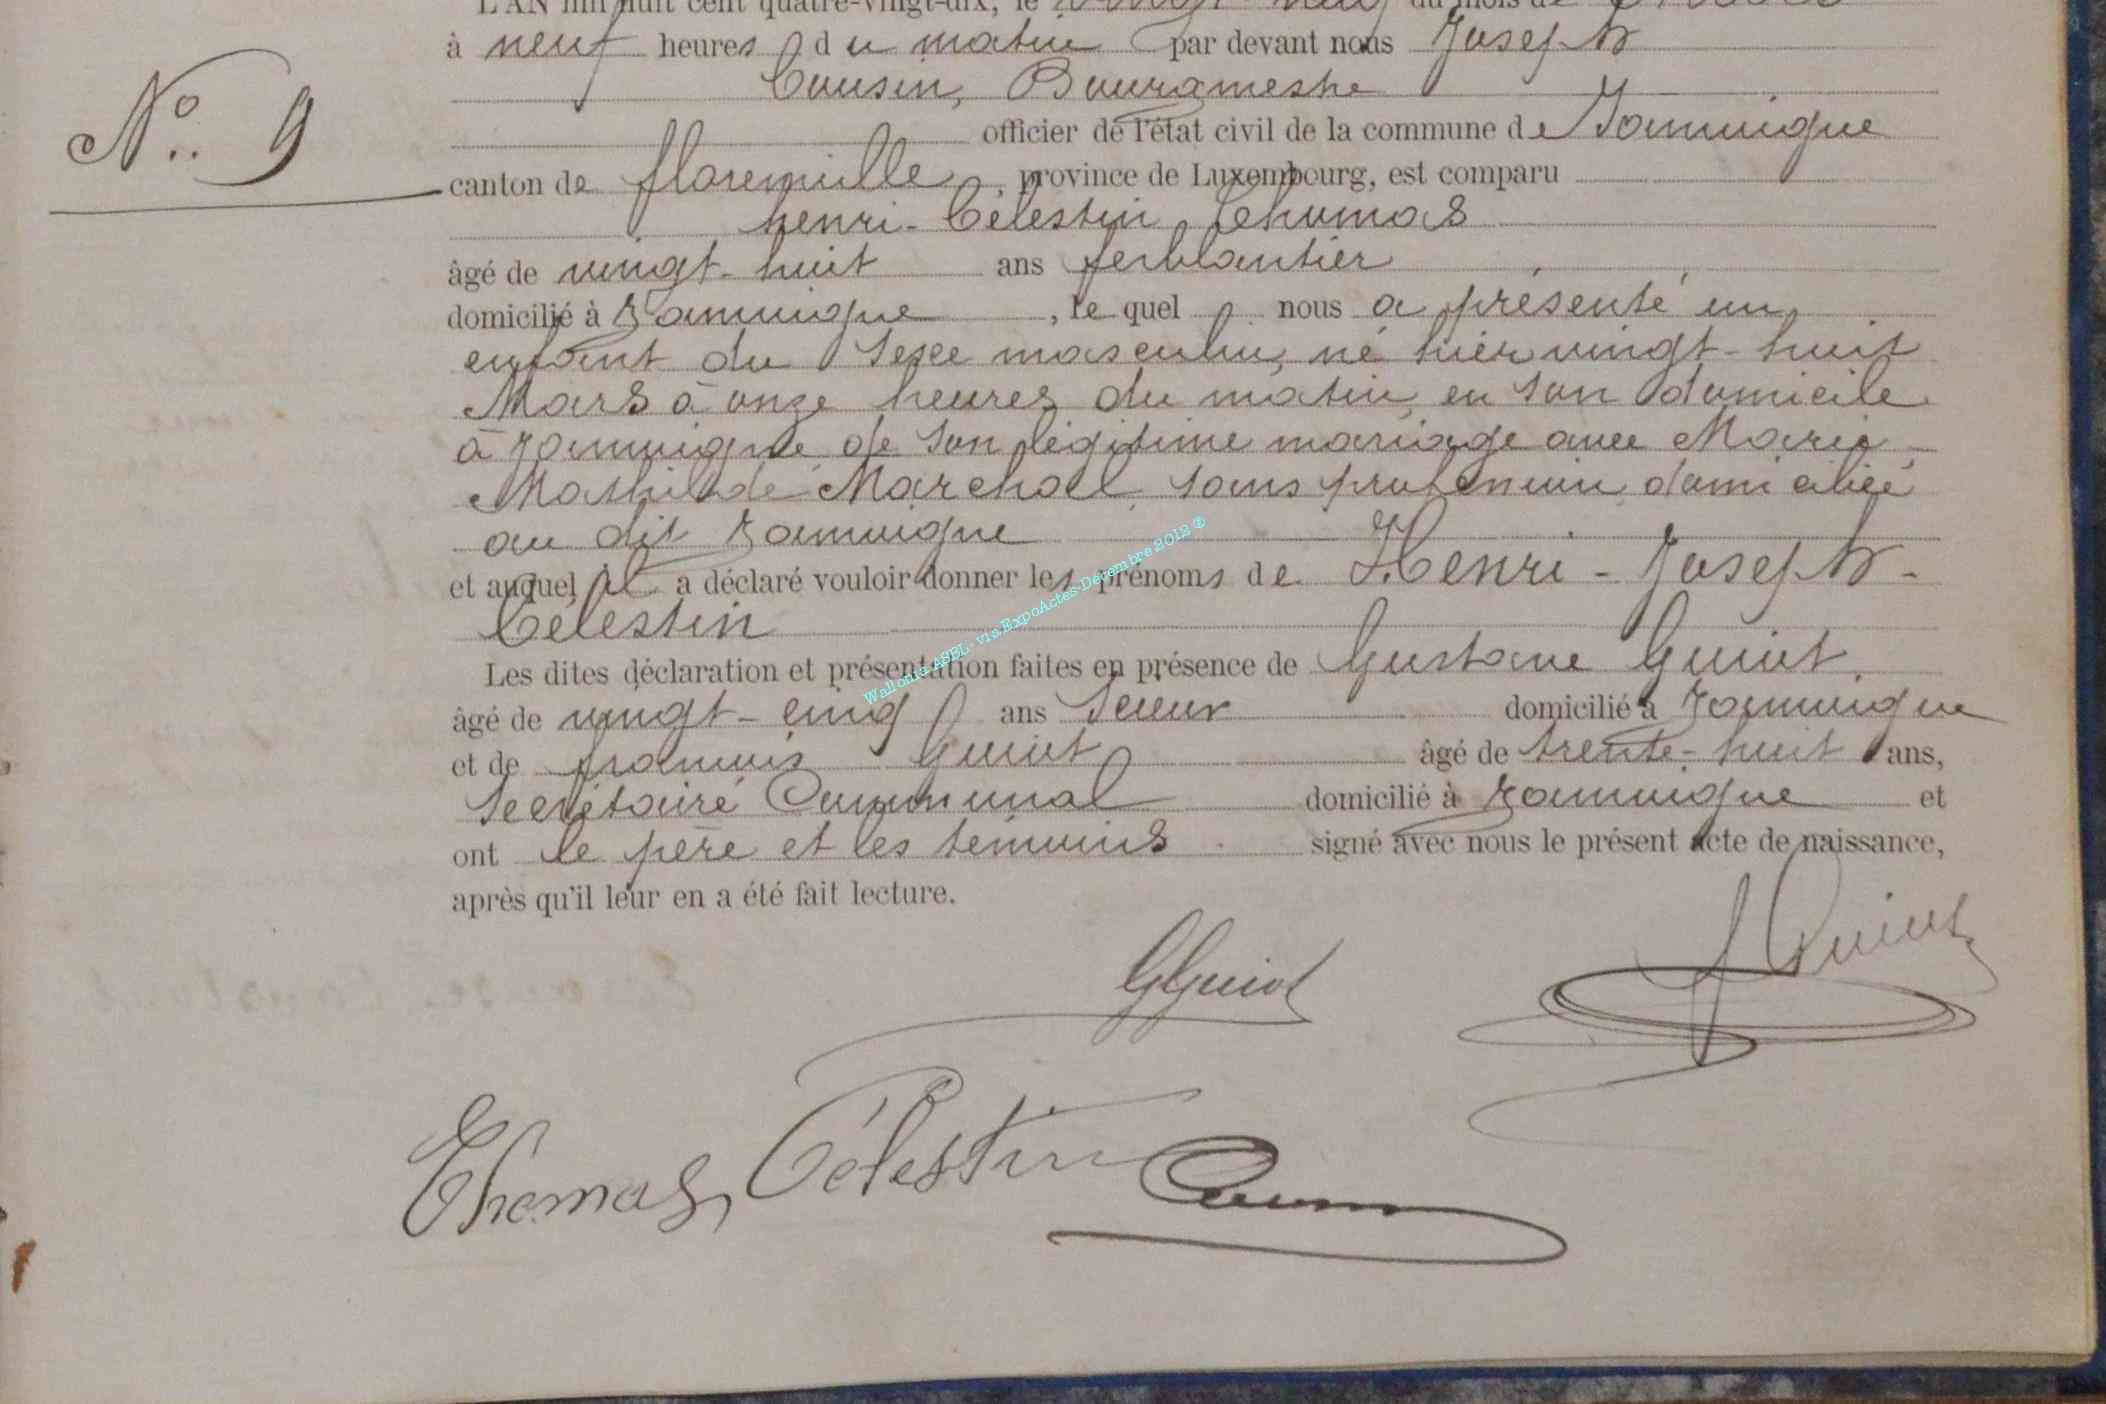 L'AN mil huit cent quatre-vingt-dix, le vingt-neuf du mois de Mars
à neuf heures du matin par devant nous Joseph
N° 9
Cousin, Bourgmestre
officier de l'état civil de la commune de Jamoigne
canton de florenville, province de Luxembourg, est comparu
henri-Célestin Thomas
âgé de vingt-huit ans ferblantier
domicilié à Jamoigne, lequel nous a présenté un
enfant du sexe masculin, né hier vingt-huit
Mars à onze heures du matin, en son domicile
à Jamoigne de son légitime mariage avec Marie
Mathilde Marchal, sans profession, domiciliée
au dit Jamoigne
et auquel il a déclaré vouloir donner les prénoms de Henri-Joseph-
Célestin
Les dites déclaration et présentation faites en présence de Gustave Guiot
âgé de vingt-cinq ans Scieur domicilié à Jamoigne
et de françois Guiot âgé de trente-huit ans,
Secrétaire Communal domicilié à Jamoigne et
ont le père et les témoins signé avec nous le présent acte de naissance,
après qu'il leur en a été fait lecture.
Wallonia ASBL - via ExpoActes-Décembre 2012 ®
GGuiot
f Guiot
Thomas, Célestin
Cousin